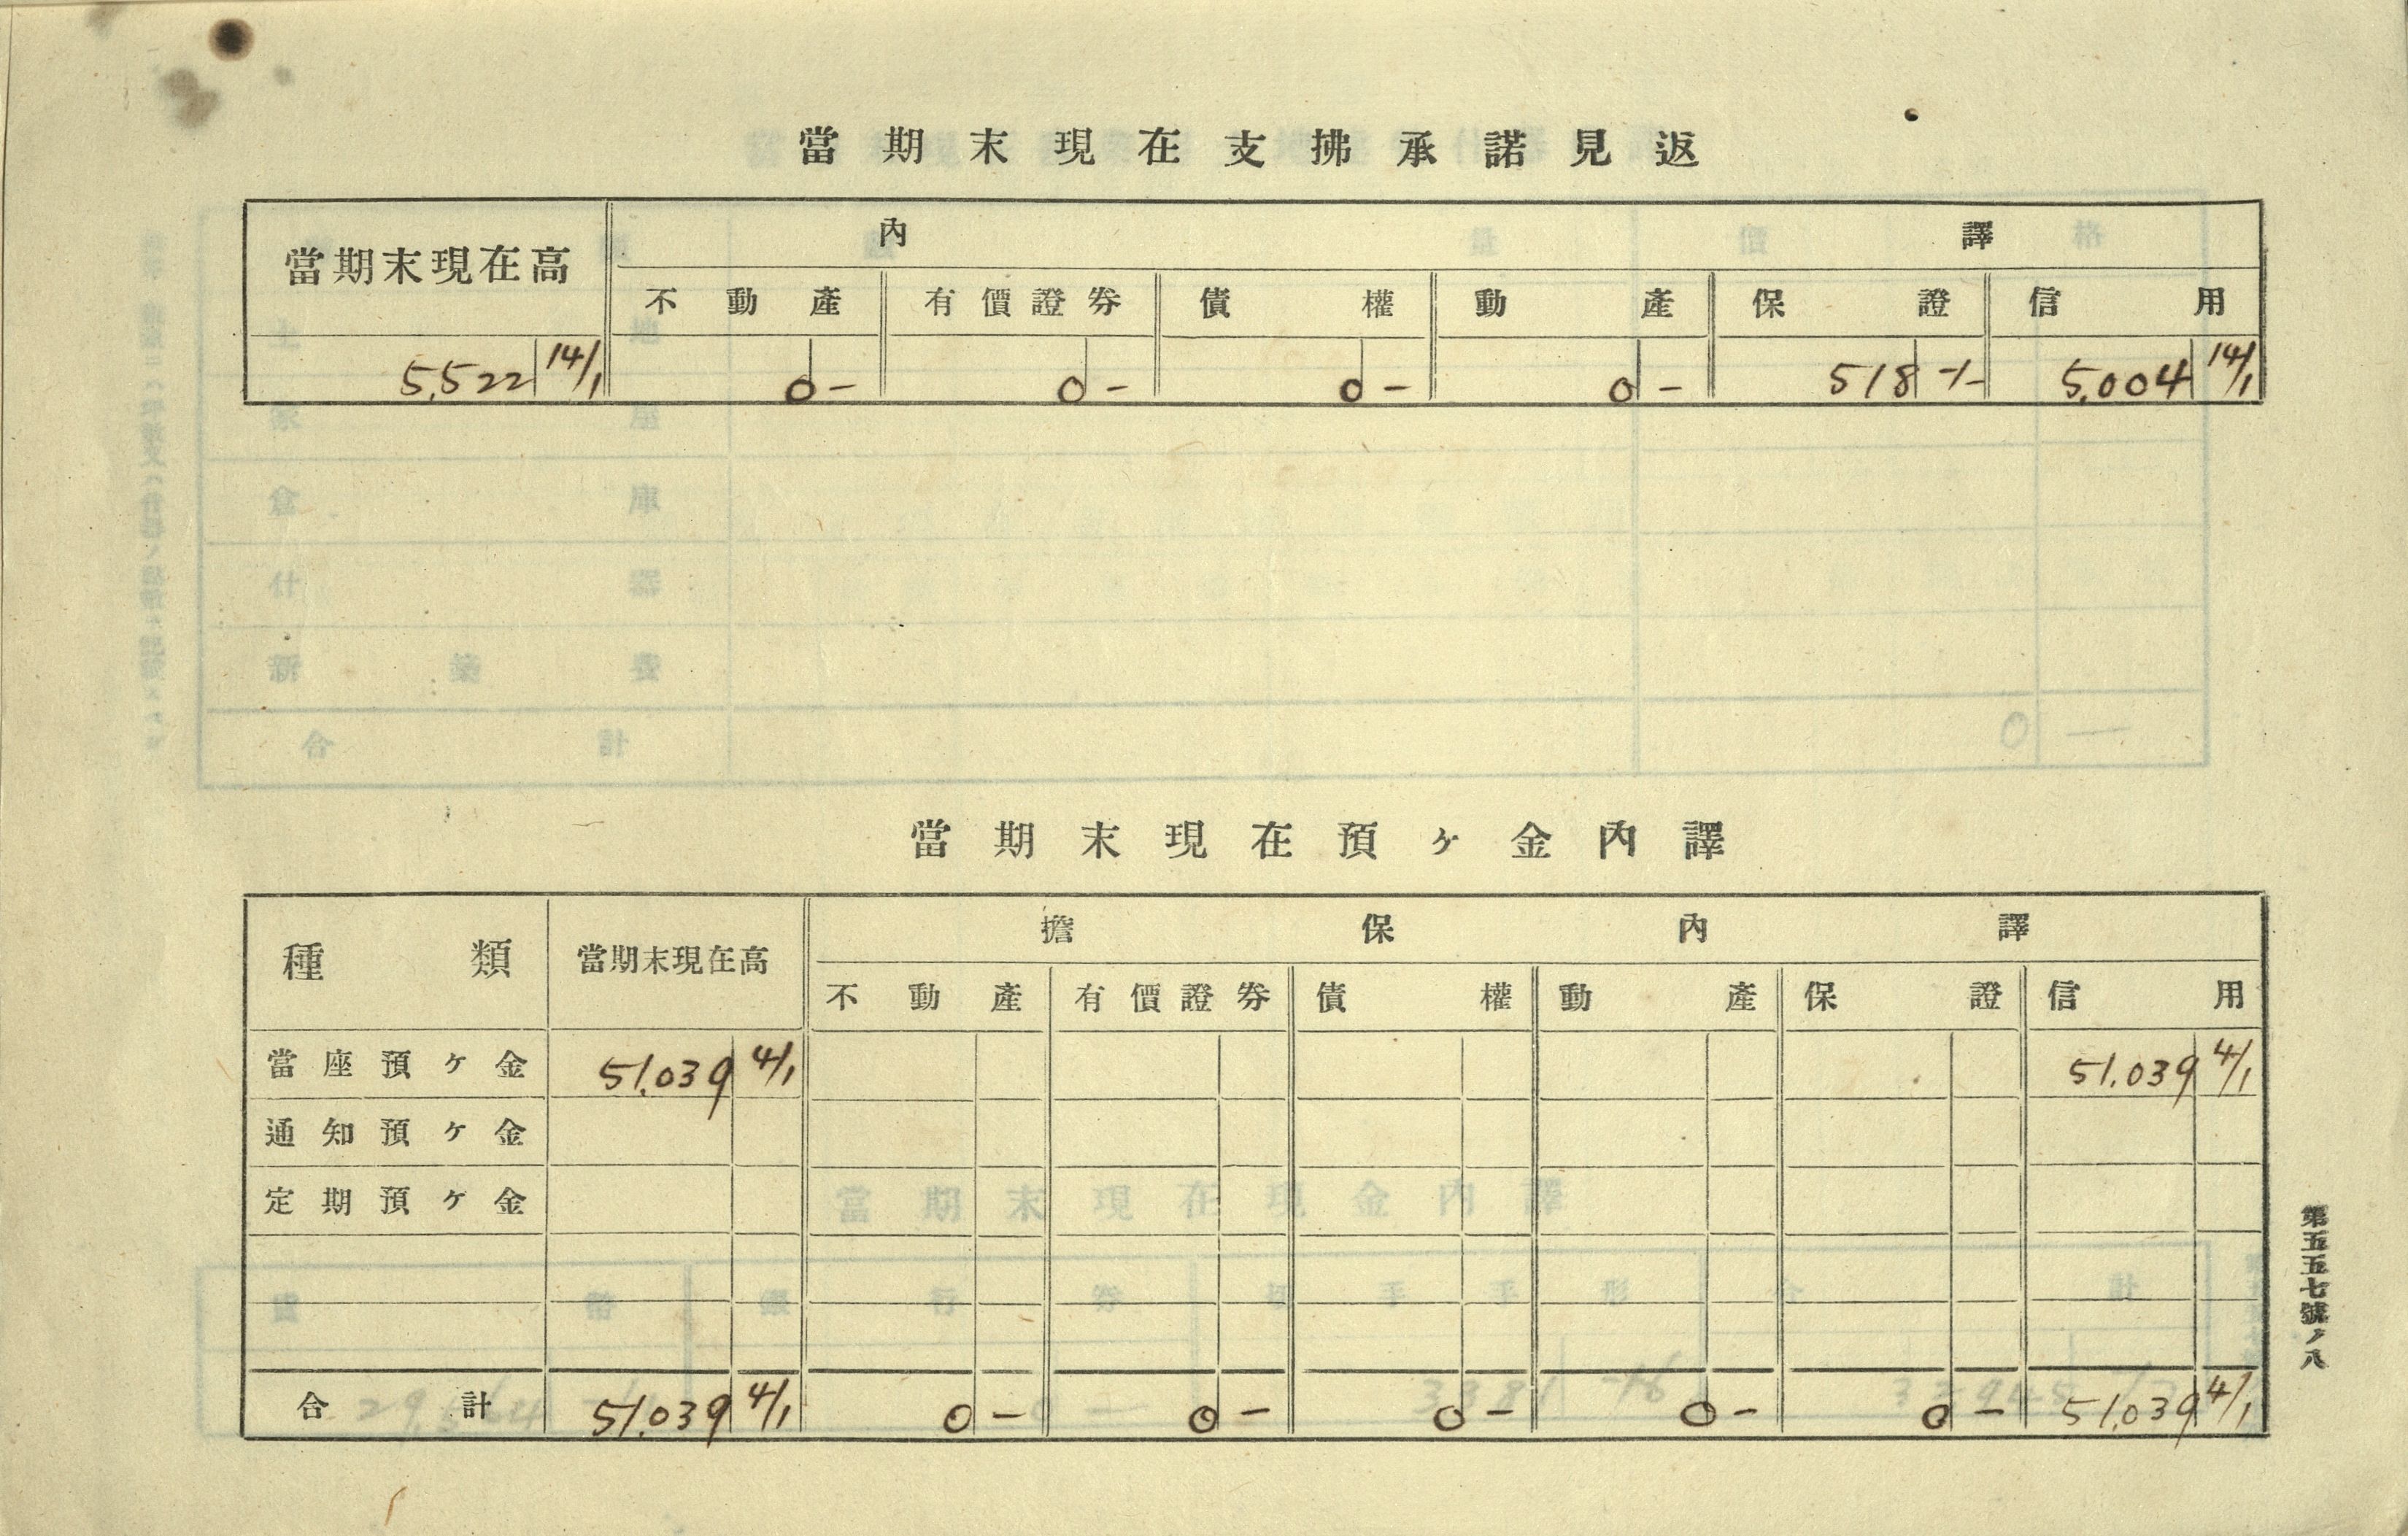 當期末現在支拂承諾見返
當期末現在高 內譯
不動產 有價證券 債權 動產 保證 信用
5,522 14/1 0 - 0 - 0 - 0 - 518 -/- 5,004 14/1
當期末現在預ヶ金內譯
種類 當期末現在高 擔保內譯
不動產 有價證券 債權 動產 保證 信用
當座預ヶ金 51,039 4/1 51,039 4/1
通知預ヶ金
定期預ヶ金
合計 51,039 4/1 0 - 0 - 0 - 0 - 0 - 51,039 4/1
第五五七號ノ八